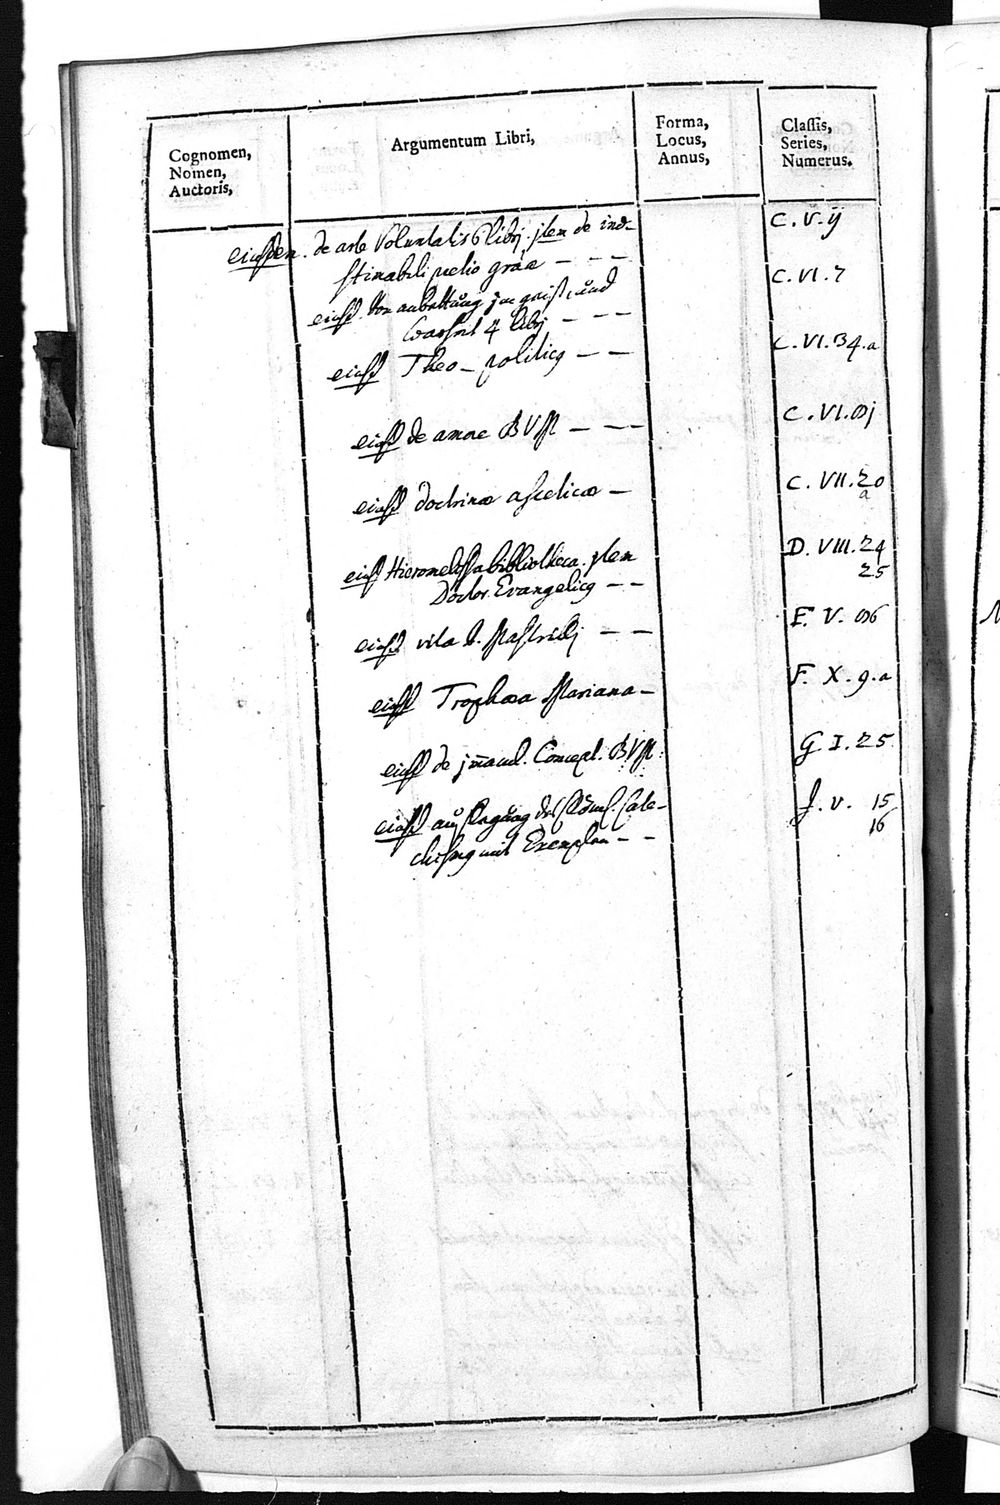 Cognomen,
Nomen,
Auctoris,
Argumentum Libri,
Forma,
Locus,
Annus,
Classis,
Series,
Numerus.
eiusdem. de arte Voluntatis 6 libri. jtem de inae-
stimabili pretio graae — — — C. V. ij
eiusd. Von anbettung jm geist, und
Warheit 4 libri — — — C. VI. 7
eiusd Theo-politicus — — C. VI. 34.a
eiusd de amore BVM — — — C. VI.
eiusd doctrinae asceticae — C. VII. 20
a
eiusd bibliotheca. jtem
Doctor Evangelicus — — D. VIII. 24
25
eiusd vita S. — — E. V.
eiusd Trophaea Mariana — F. X. 9.a
eiusd de jmacul. Concept. BVM. G. I. 25
eiusd außlegung des Cate-
chismus mit Exemplen — — J. V. 15
16